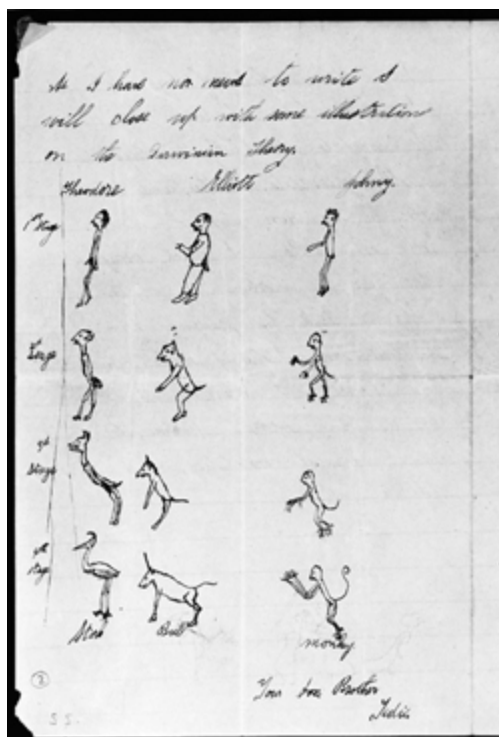 As I have nor need to write I
will close up with some illustrations
on the Darwinian Theory.
Theodore Elliott Johny
1st Stage
Stage
Stage
Stage
Stork Bull monkey
Your Brother
Tedie
2